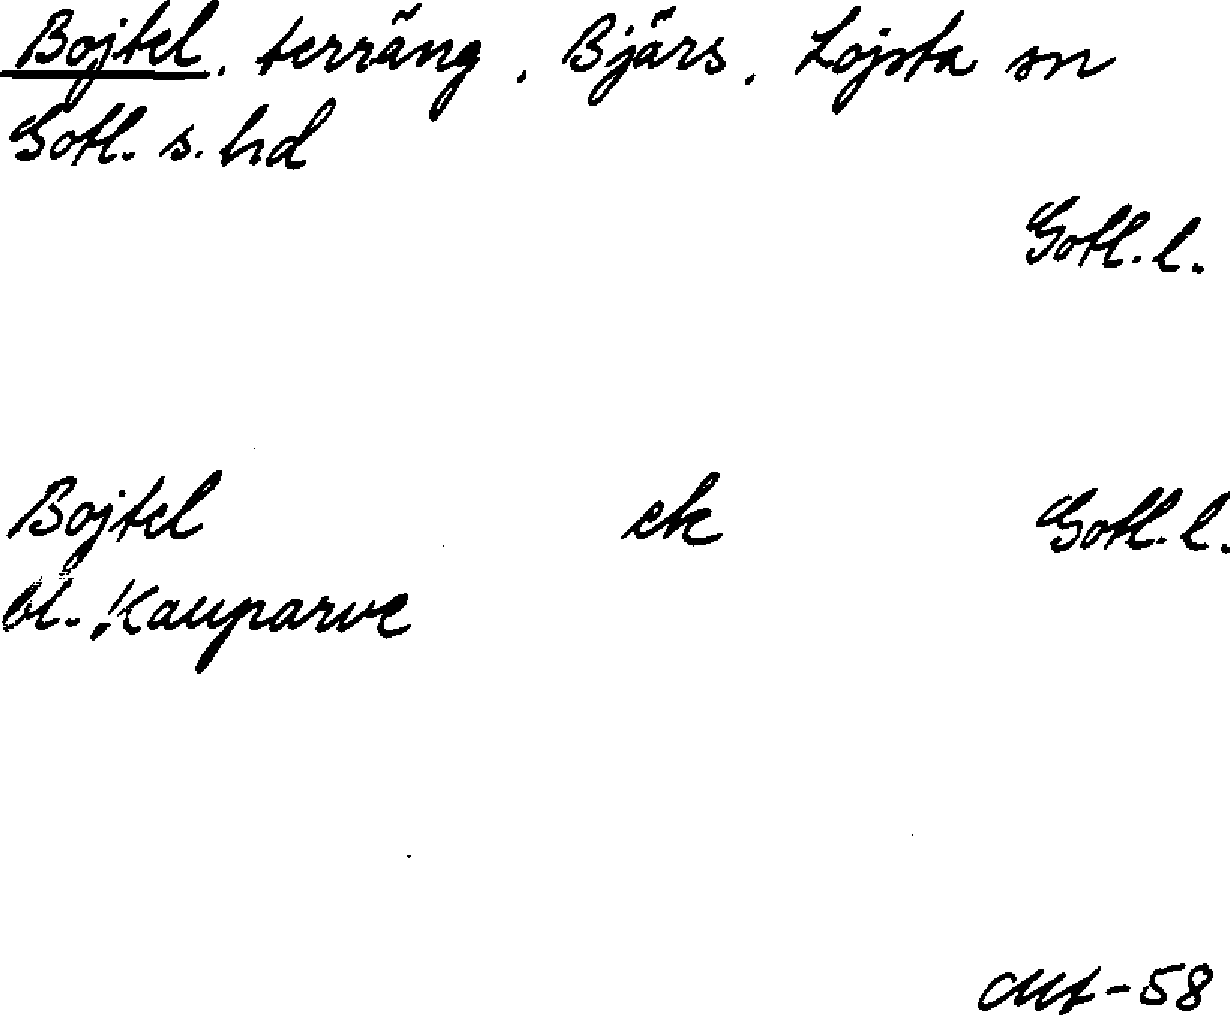 Bojtel. terräng. Bjärs. Lojsta sn
Gotl. s. hd
Gotl. l.
Bojtel ek Gotl. l.
bl. Kauparve
-58